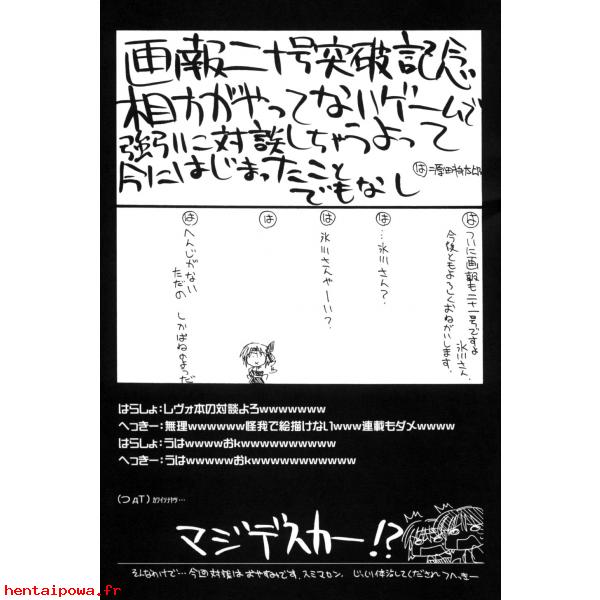 画報二十号突破記念
相方がやってないゲームで
強引に対談しちゃうよって
今にはじまったこと
でもなし
は
は
ついに画報も二十一号ですよ
氷川さん。
今後ともよろしくおねがいします。
は
…氷川さん?
は
氷川さんやーい?
は
は
へんじがない
ただの しかばねのようだ
はらしょ：レヴォ本の対談よろwwwwwww
へっきー：無理wwwwww怪我で絵描けないwww連載もダメwwww
はらしょ：うはwwwwおkwwwwwwwwww
へっきー：うはwwwwwおkwwwwwwwwwww
(つдT) カワイソナヤツ…
マジデスカー!?
そんなわけで…今回対談はおやすみです。スミマセン。 じっくり休治してくだされ へっきー
hentaipowa.fr